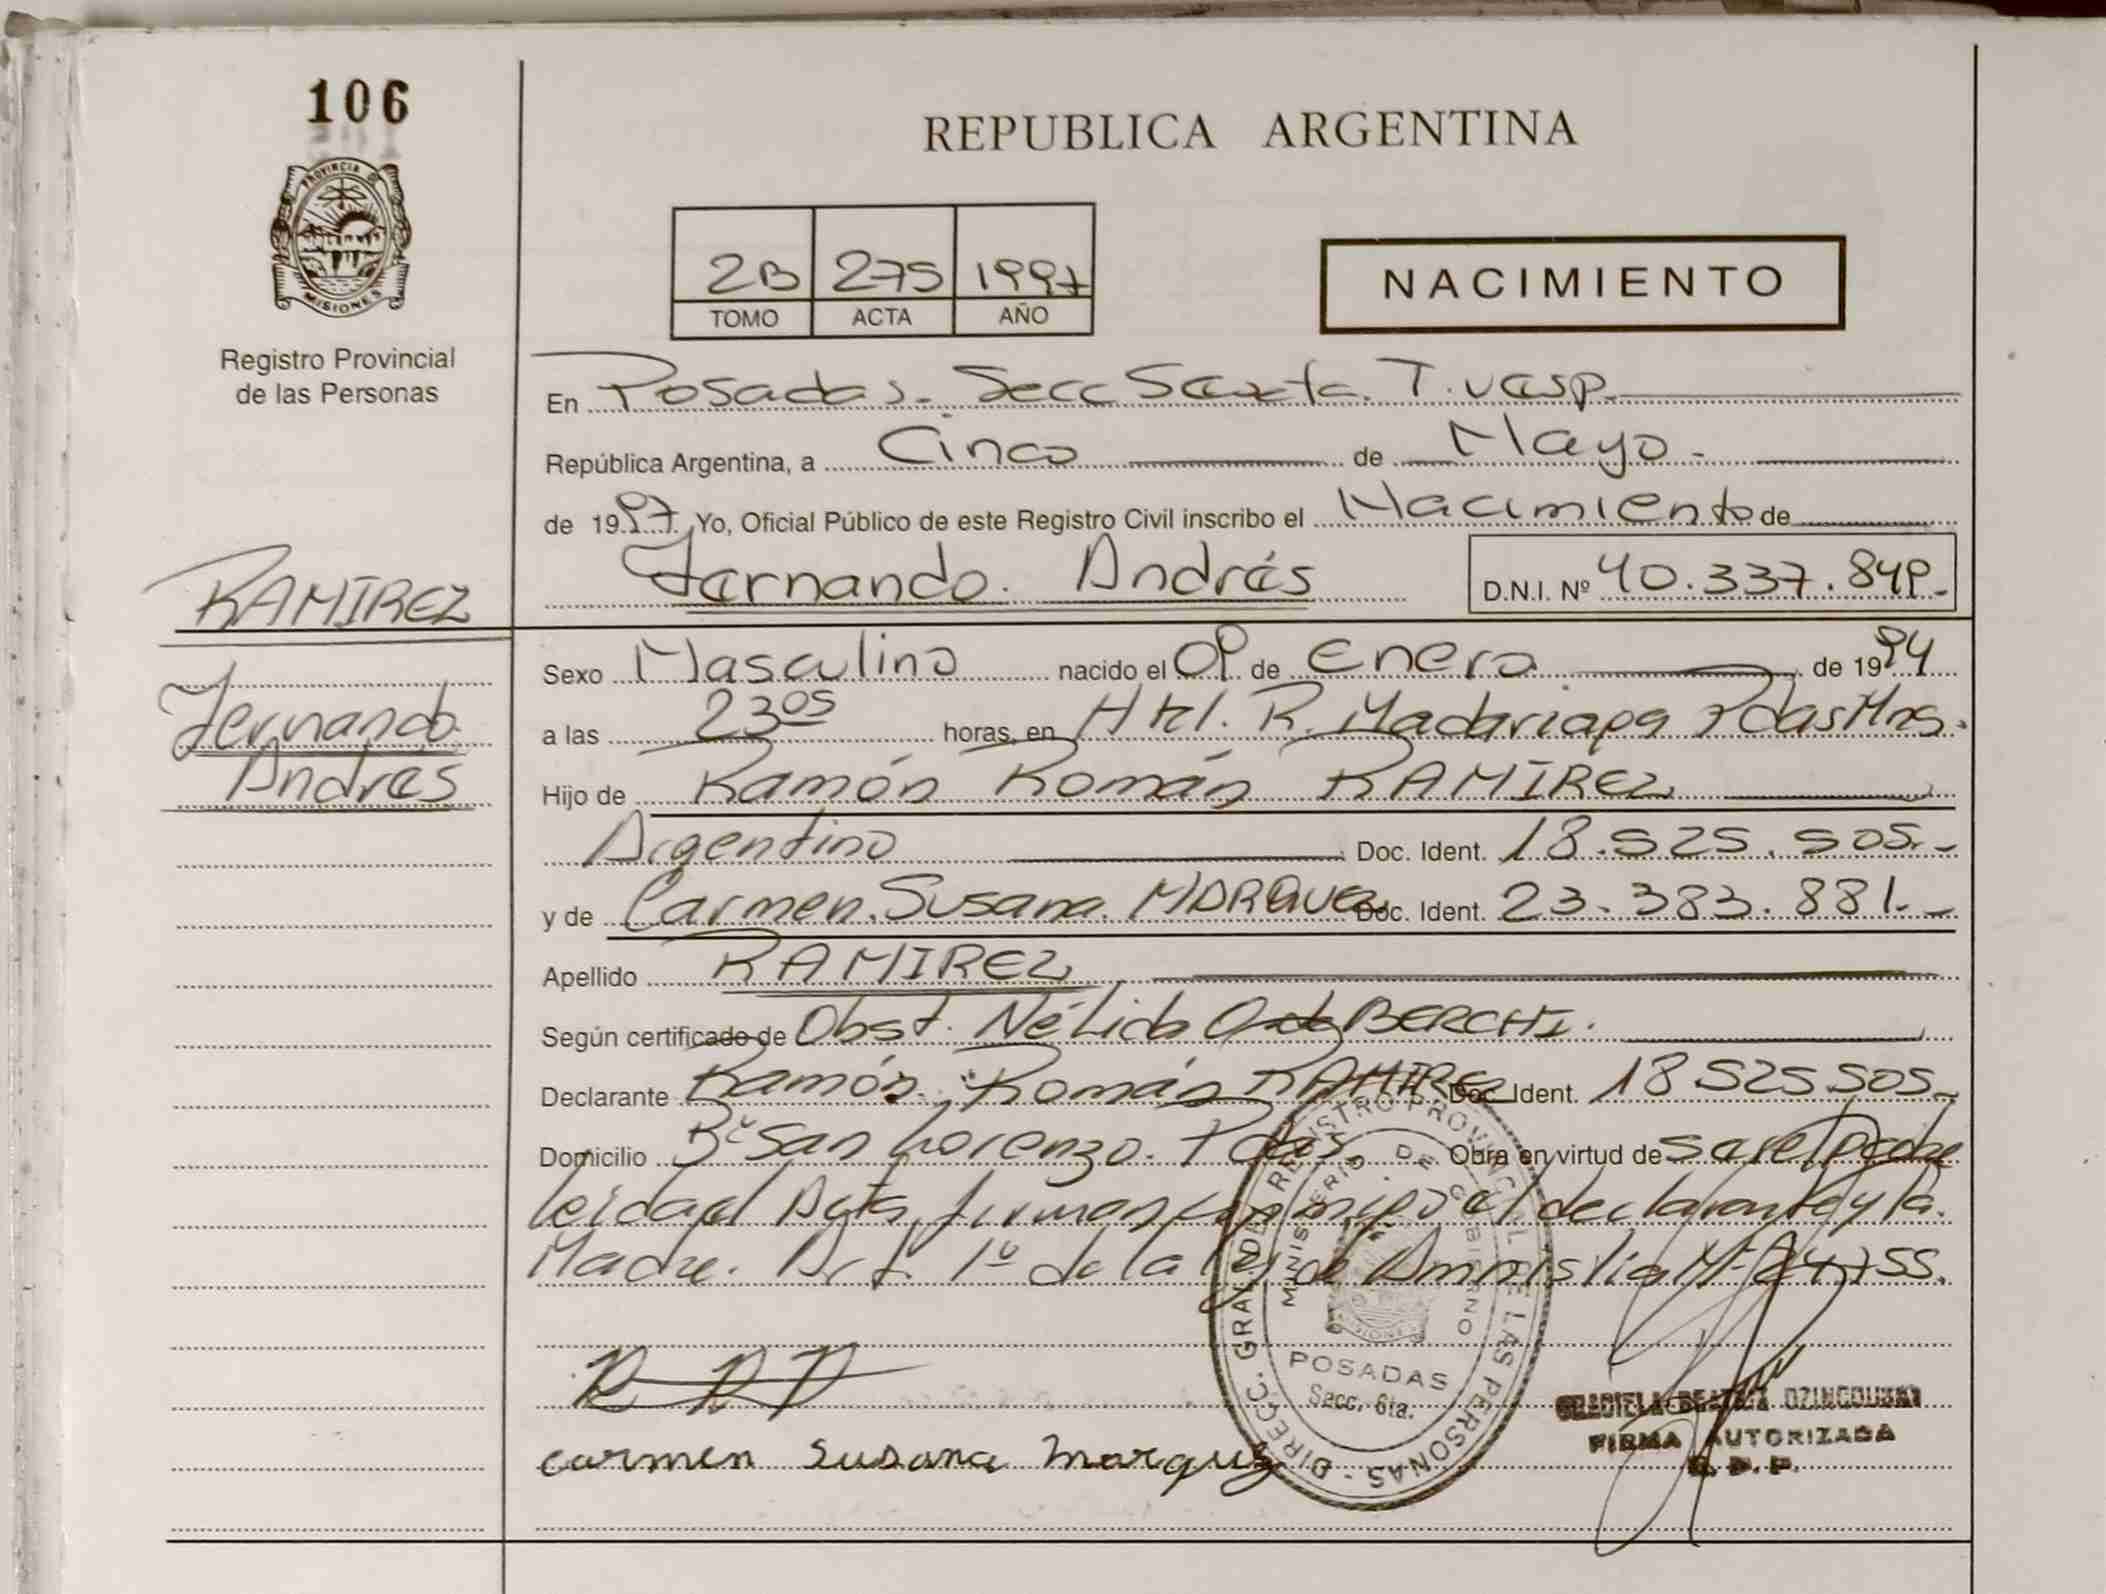 106
PROVINCIA DE
MISIONES
Registro Provincial
de las Personas
REPUBLICA ARGENTINA
2B 275 1997
TOMO ACTA AÑO
NACIMIENTO
En Posadas. Secc Sexta. T. vesp.
República Argentina, a Cinco de Mayo.
de 1997. Yo, Oficial Público de este Registro Civil inscribo el Nacimiento de
Fernando. Andrés D.N.I. Nº 40.337.849.-
RAMIREZ
Fernando
Andrés
Sexo Masculino nacido el 09 de Enero de 1994
a las 23 05 horas, en Htel. R. Madariaga Pdas Mns.
Hijo de Ramón Román RAMIREZ
Argentino Doc. Ident. 18.525.505.-
y de Carmen. Susana. MARQUEZ Doc. Ident. 23.383.881.-
Apellido RAMIREZ
Según certificado de Obst. Nélida BERCHI.
Declarante Ramón Román RAMIREZ Doc. Ident. 18 525 505.-
Domicilio Bº San Lorenzo. Pdas. Obra en virtud de ser el Padre
leida el Acta firman conmigo el declarante y la
Madre. Art. 1º de la ley de Amnistia Nº 24755.
Carmen Susana Marquez
DIRECC. GRAL. DEL REGISTRO PROVINCIAL DE LAS PERSONAS
MINISTERIO DE GOBIERNO
MISIONES
POSADAS
Secc. 6ta.
FIRMA AUTORIZADA
R. P. P.